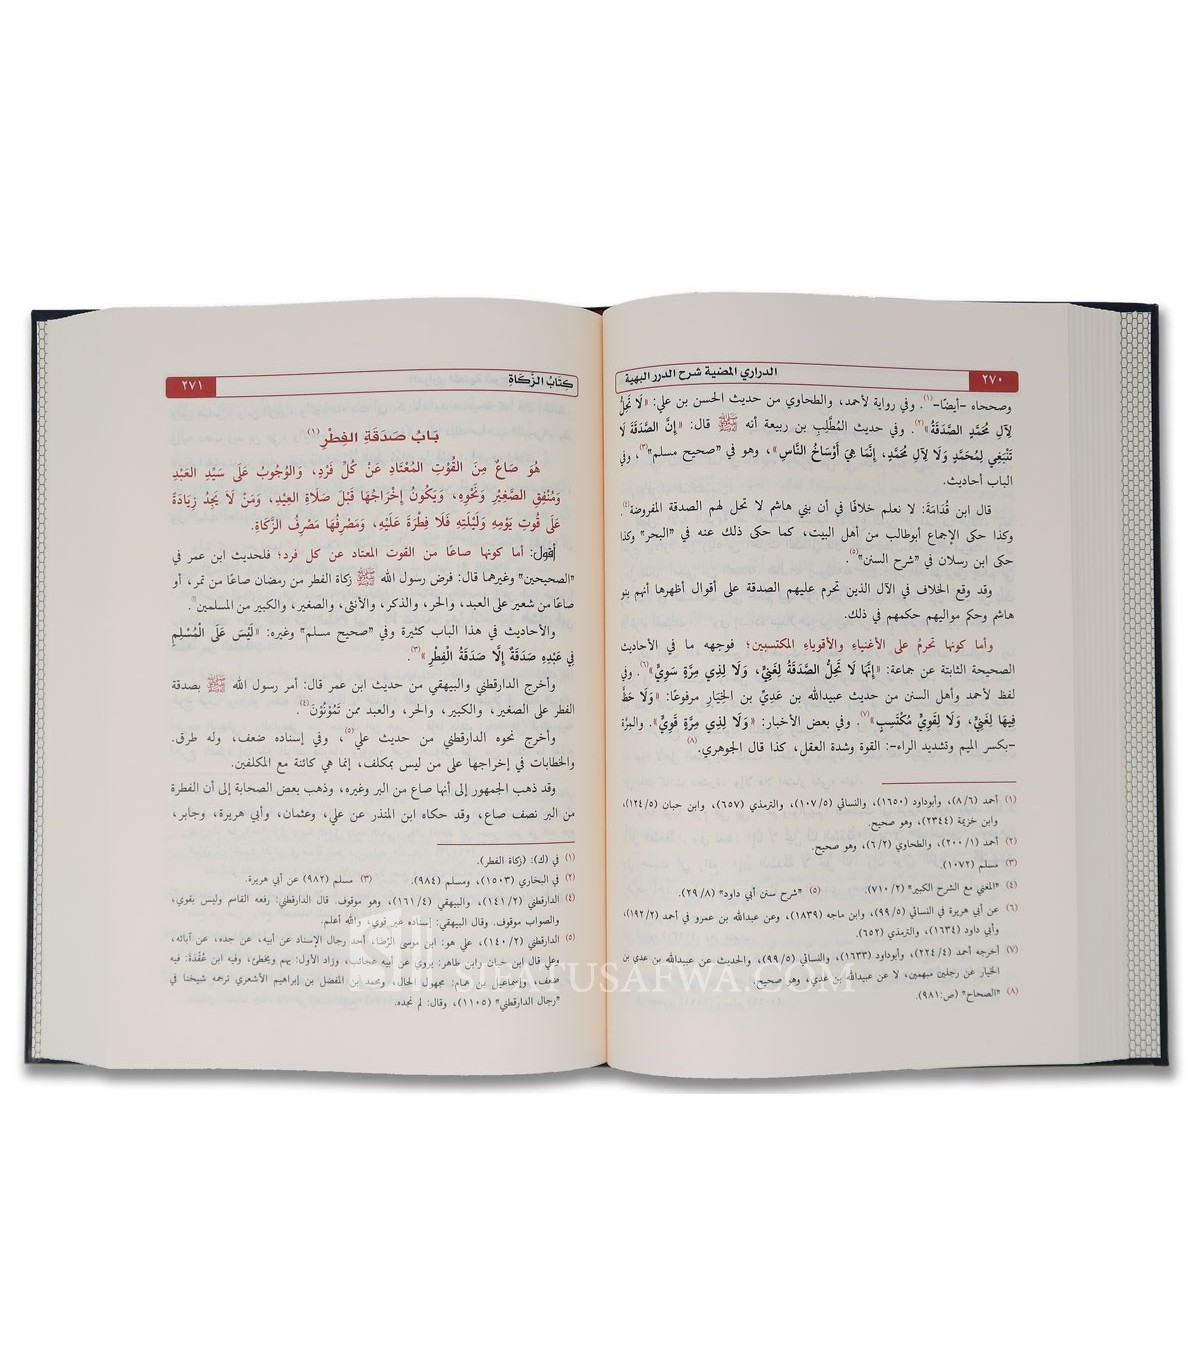 ٢٧٠
الدراري المضية شرح الدرر البهية
وصححاه -أيضًا-(١). وفي رواية لأحمد، والطحاوي من حديث الحسن بن علي: «لَا تَحِلُّ
لِآلِ مُحَمَّدٍ الصَّدَقَةُ»(٢). وفي حديث المُطَّلِبِ بن ربيعة أنه ﷺ قال: «إِنَّ الصَّدَقَةَ لَا
تَنْبَغِي لِمُحَمَّدٍ وَلَا لِآلِ مُحَمَّدٍ، إِنَّمَا هِيَ أَوْسَاخُ النَّاسِ»، وهو في "صحيح مسلم"(٣)، وفي
الباب أحاديث.
قال ابن قُدَامَةَ: لا نعلم خلافًا في أن بني هاشم لا تحل لهم الصدقة المفروضة(٤)
وكذا حكى الإجماع أبوطالب من أهل البيت، كما حكى ذلك عنه في "البحر" وكذا
حكى ابن رسلان في "شرح السنن"(٥).
وقد وقع الخلاف في الآل الذين تحرم عليهم الصدقة على أقوال أظهرها أنهم بنو
هاشم وحكم مواليهم حكمهم في ذلك.
وأما كونها تحرمُ على الأغنياءِ والأقوياءِ المكتسبين؛ فوجهه ما في الأحاديث
الصحيحة الثابتة عن جماعة: «إِنَّهَا لَا تَحِلُّ الصَّدَقَةُ لِغَنِيٍّ، وَلَا لِذِي مِرَّةٍ سَوِيٍّ»(٦). وفي
لفظ لأحمد وأهل السنن من حديث عبيدالله بن عَدِيِّ بن الخِيَارِ مرفوعًا: «وَلَا حَظَّ
فِيهَا لِغَنِيٍّ، وَلَا لِقَوِيٍّ مُكْتَسِبٍ»(٧). وفي بعض الأخبار: «وَلَا لِذِي مِرَّةٍ قَوِيٍّ». والمِرَّة
-بكسر الميم وتشديد الراء-: القوة وشدة العقل، كذا قال الجوهري.(٨)
(١) أحمد (٨/٦)، وأبوداود (١٦٥٠)، والنسائي (١٠٧/٥)، والترمذي (٦٥٧)، وابن حبان (١٢٤/٥)،
وابن خزيمة (٢٣٤٤)، وهو صحيح.
(٢) أحمد (٢٠٠/١)، والطحاوي (٦/٢)، وهو صحيح.
(٣) مسلم (١٠٧٢).
(٤) "المغني مع الشرح الكبير" (٧١٠/٢). (٥) "شرح سنن أبي داود" (٢٩/٨).
(٦) عن أبي هريرة في النسائي (٩٩/٥)، وابن ماجه (١٨٣٩)، وعن عبدالله بن عمرو في أحمد (١٩٢/٢)،
وأبي داود (١٦٣٤)، والترمذي (٦٥٢).
(٧) أخرجه أحمد (٢٢٤/٤)، وأبوداود (١٦٣٣)، والنسائي (٩٩/٥)، والحديث عن عبيدالله بن عدي بن
الخيار عن رجلين مبهمين، لا عن عبيدالله بن عدي، وهو صحيح.
(٨) "الصحاح" (ص:٩٨١).
كِتَابُ الزَّكَاةِ
٢٧١
بَابُ صَدَقَةِ الفِطْرِ(١)
هُوَ صَاعٌ مِنَ القُوْتِ المُعْتَادِ عَنْ كُلِّ فَرْدٍ، وَالوُجُوبُ عَلَى سَيِّدِ العَبْدِ
وَمُنْفِقِ الصَّغِيْرِ وَنَحْوِهِ، وَيَكُونُ إِخْرَاجُهَا قَبْلَ صَلَاةِ العِيْدِ، وَمَنْ لَا يَجِدُ زِيَادَةً
عَلَى قُوتِ يَوْمِهِ وَلَيْلَتِهِ فَلَا فِطْرَةَ عَلَيْهِ، وَمَصْرِفُهَا مَصْرِفُ الزَّكَاةِ.
أقول: أما كونها صاعًا من القوت المعتاد عن كل فرد؛ فلحديث ابن عمر في
"الصحيحين" وغيرهما قال: فرض رسول الله ﷺ زكاة الفطر من رمضان صاعًا من تمر، أو
صاعًا من شعير على العبد، والحر، والذكر، والأنثى، والصغير، والكبير من المسلمين(٢).
والأحاديث في هذا الباب كثيرة وفي "صحيح مسلم" وغيره: «لَيْسَ عَلَى الْمُسْلِمِ
فِي عَبْدِهِ صَدَقَةٌ إِلَّا صَدَقَةُ الْفِطْرِ»(٣).
وأخرج الدارقطني والبيهقي من حديث ابن عمر قال: أمر رسول الله ﷺ بصدقة
الفطر على الصغير، والكبير، والحر، والعبد ممن تَمُوْنُوْنَ(٤).
وأخرج نحوه الدارقطني من حديث علي(٥)، وفي إسناده ضعف، وله طرق.
والخطابات في إخراجها على من ليس بمكلف، إنما هي كائنة مع المكلفين.
وقد ذهب الجمهور إلى أنها صاع من البر وغيره، وذهب بعض الصحابة إلى أن الفطرة
من البر نصف صاع، وقد حكاه ابن المنذر عن علي، وعثمان، وأبي هريرة، وجابر،
(١) في (ك): (زكاة الفطر).
(٢) في البخاري (١٥٠٣)، ومسلم (٩٨٤). (٣) مسلم (٩٨٢) عن أبي هريرة.
(٤) الدارقطني (١٤١/٢)، والبيهقي (١٦١/٤)، وهو موقوف. قال الدارقطني: رفعه القاسم وليس بقوي،
والصواب موقوف. وقال البيهقي: إسناده غير قوي، والله أعلم.
(٥) الدارقطني (١٤٠/٢)، علي هو: ابن موسى الرِّضَا، أحد رجال الإسناد عن أبيه، عن جده، عن آبائه،
وعلي قال ابن حبان وابن طاهر: يروي عن أبيه عجائب، وزاد الأول: يهم ويخطئ، وفيه ابن عُقْدَة: فيه
ضعف، وإسماعيل بن همام: مجهول الحال، ومحمد بن المفضل بن إبراهيم الأشعري ترجمه شيخنا في
"رجال الدارقطني" (١١٠٥)، وقال: لم نجده.
SIFATUSAFWA.COM